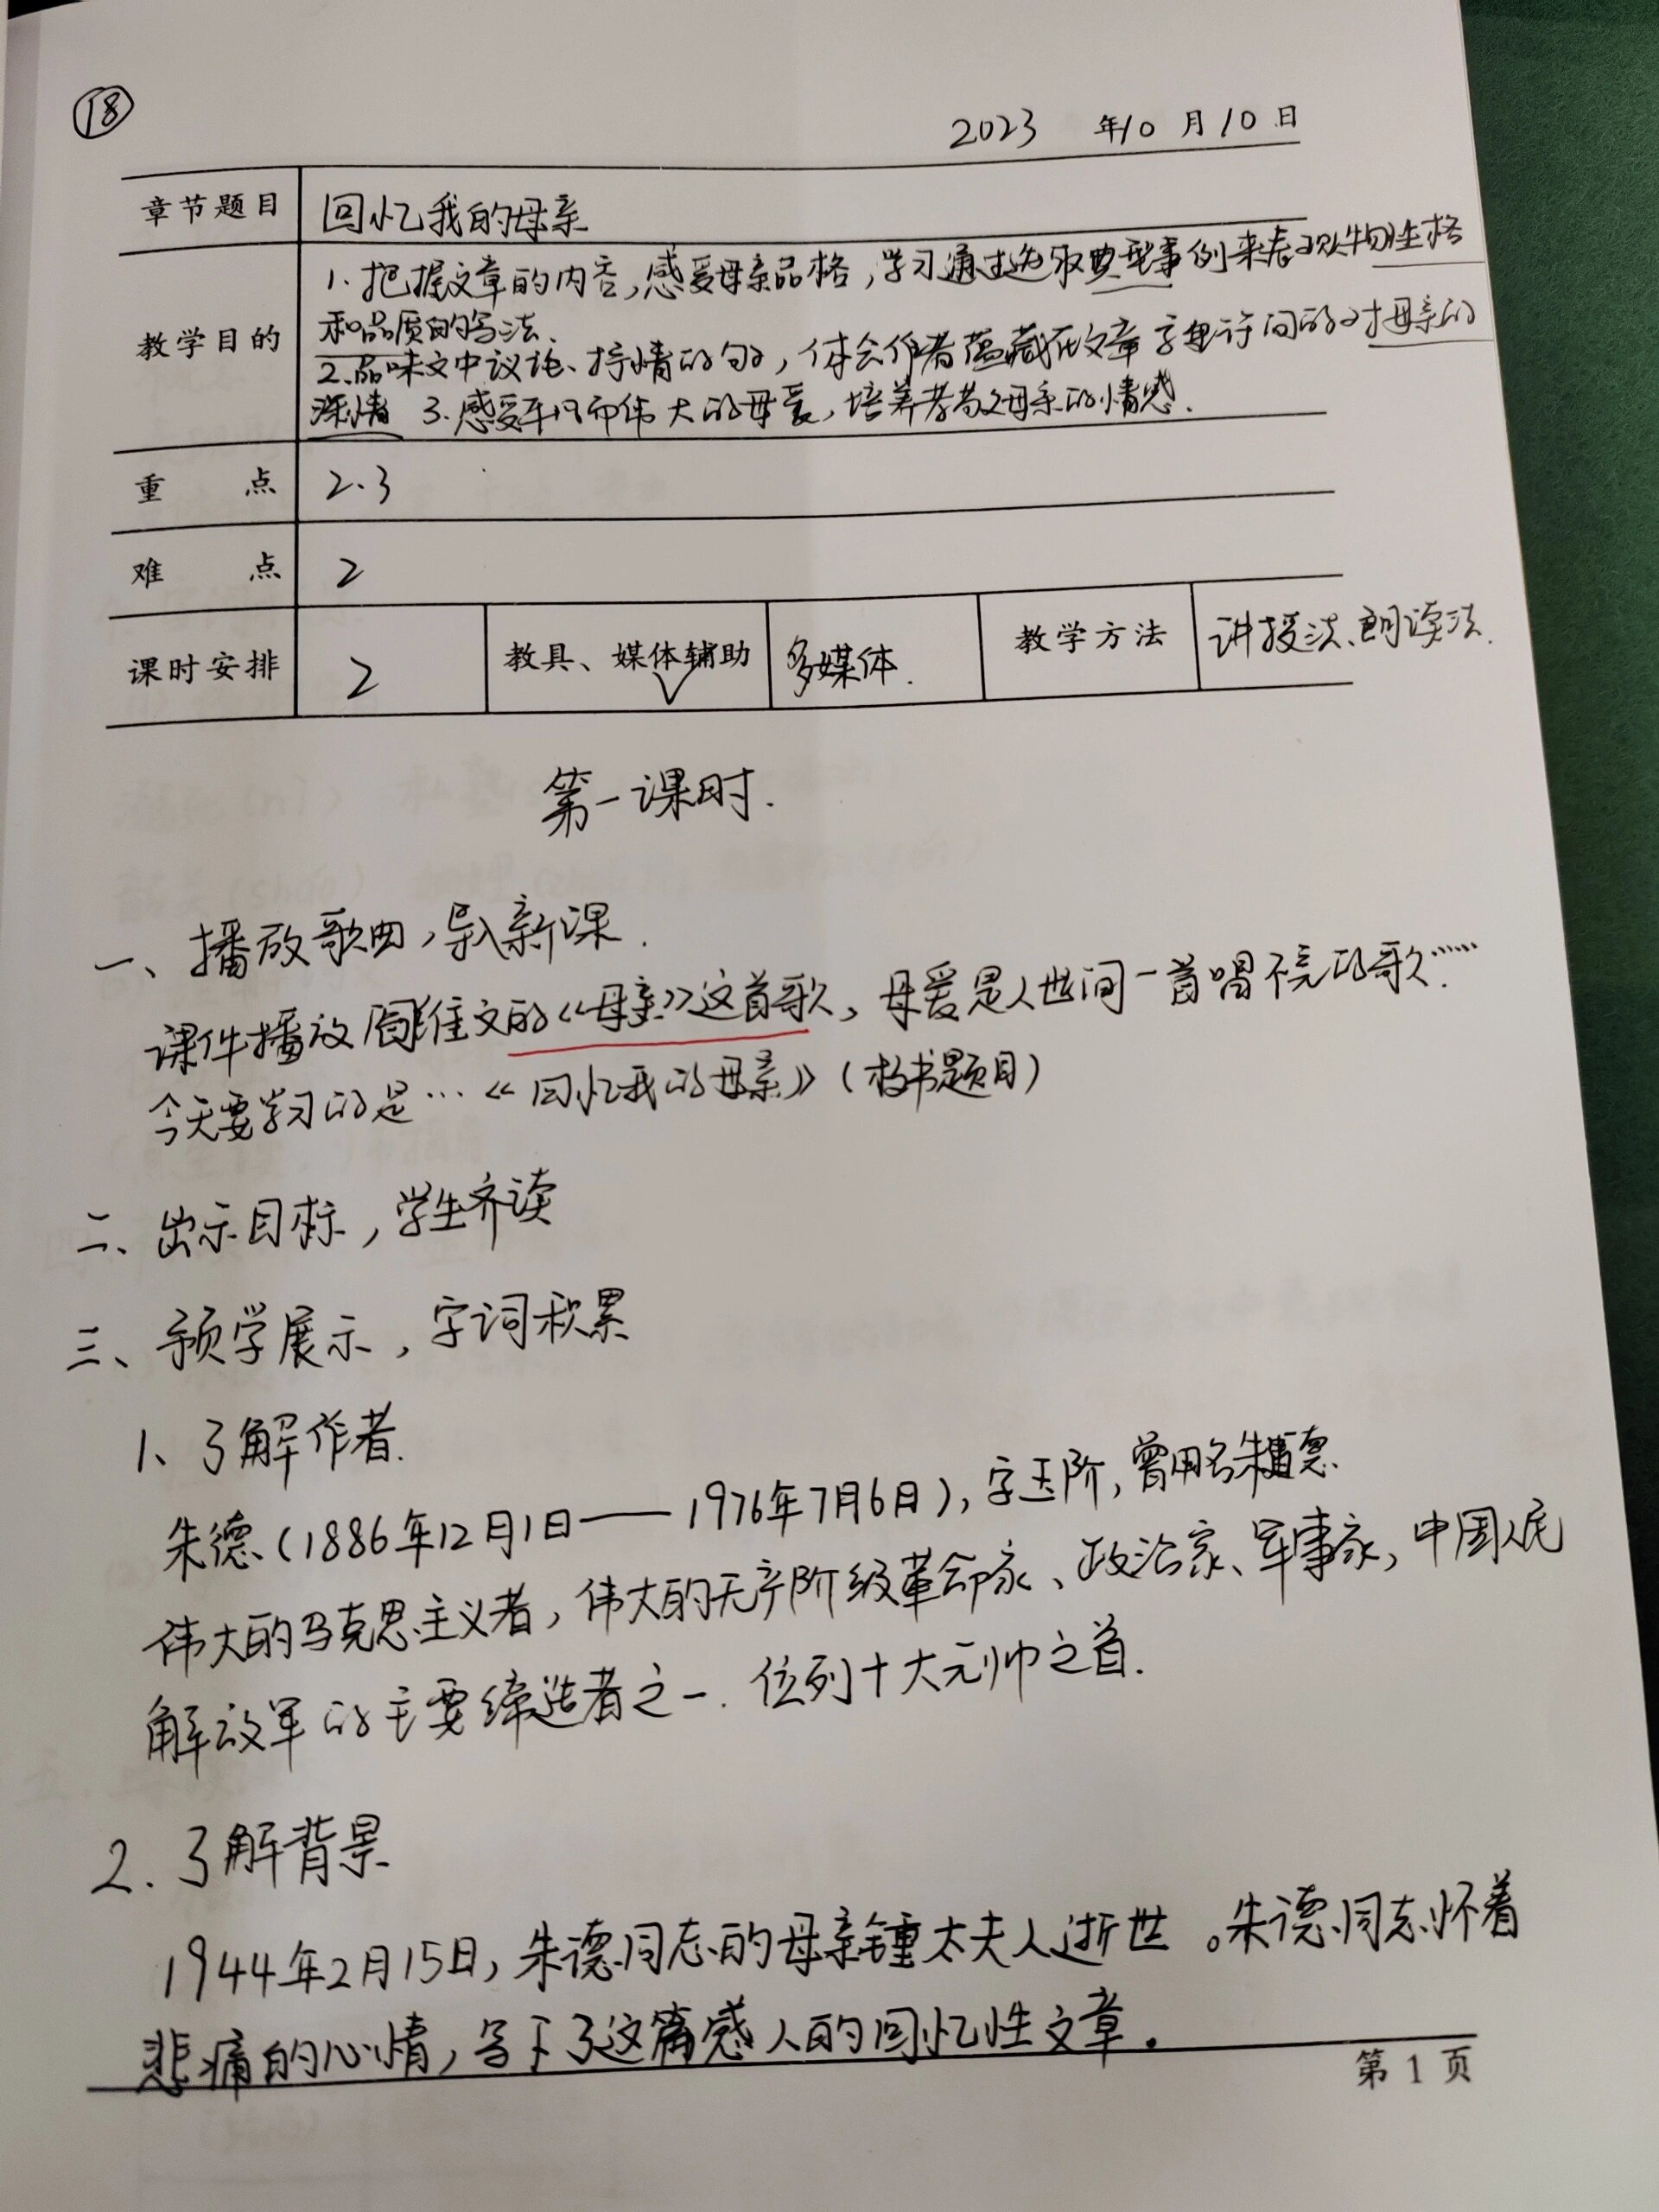 18
2023 年10 月10 日
章节题目 回忆我的母亲
1.把握文章的内容,感受母亲品格,学习通过选取典型事例来表现人物性格
教学目的 和品质的写法.
2.品味文中议论、抒情的句子,体会作者蕴藏在文章字里行间的对母亲的
深情 3.感受平凡而伟大的母爱,培养孝敬父母亲的情感.
重 点 2.3
难 点 2
课时安排 2 教具、媒体辅助 多媒体. 教学方法 讲授法、朗读法.
第一课时.
一、播放歌曲,导入新课.
课件播放阎维文的《母亲》这首歌,母爱是人世间一首唱不完的歌……
今天要学习的是…《回忆我的母亲》(板书题目)
二、出示目标,学生齐读
三、预学展示,字词积累
1、了解作者.
朱德(1886年12月1日——1976年7月6日),字玉阶,曾用名朱建德.
伟大的马克思主义者,伟大的无产阶级革命家、政治家、军事家,中国人民
解放军的主要缔造者之一.位列十大元帅之首.
2.了解背景
1944年2月15日,朱德同志的母亲锺太夫人逝世。朱德同志怀着
悲痛的心情,写下了这篇感人的回忆性文章。
第 1 页